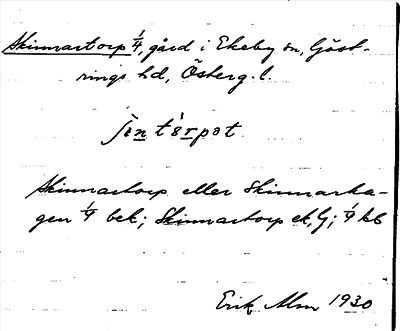 Skinnartorp 1/4, gård i Ekeby sn, Göst-
rings hd, Österg. l.
Skinnartorp eller Skinnarha-
gen 1/4 bek; Skinnartorp ek, G; 1/4 kb
Erik Alm 1930